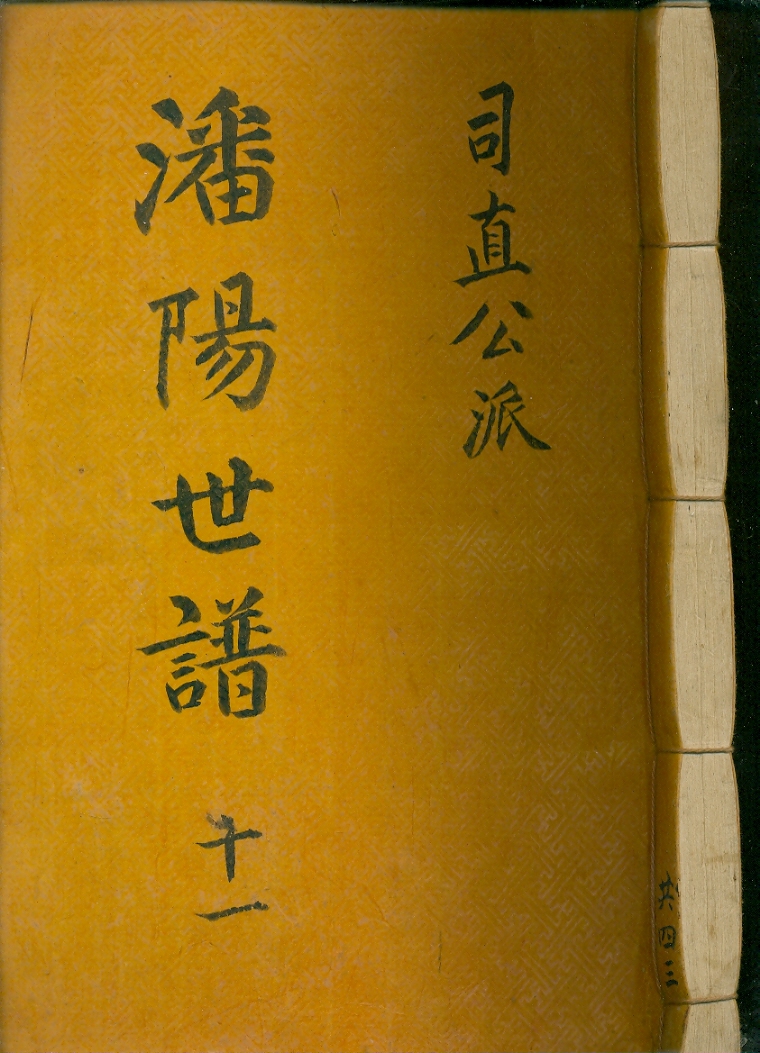 司直公派
潘陽世譜 十一
共四三